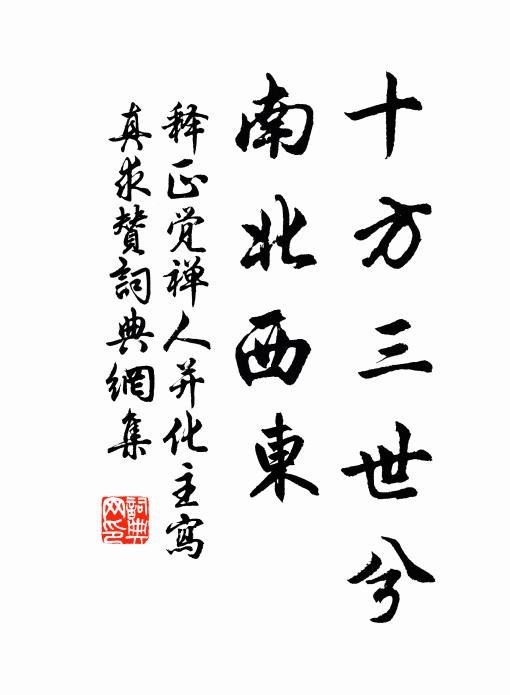 十方三世兮
南北西東
释正觉禅人并化主寫
真求贊詞典網集
詞典
网印